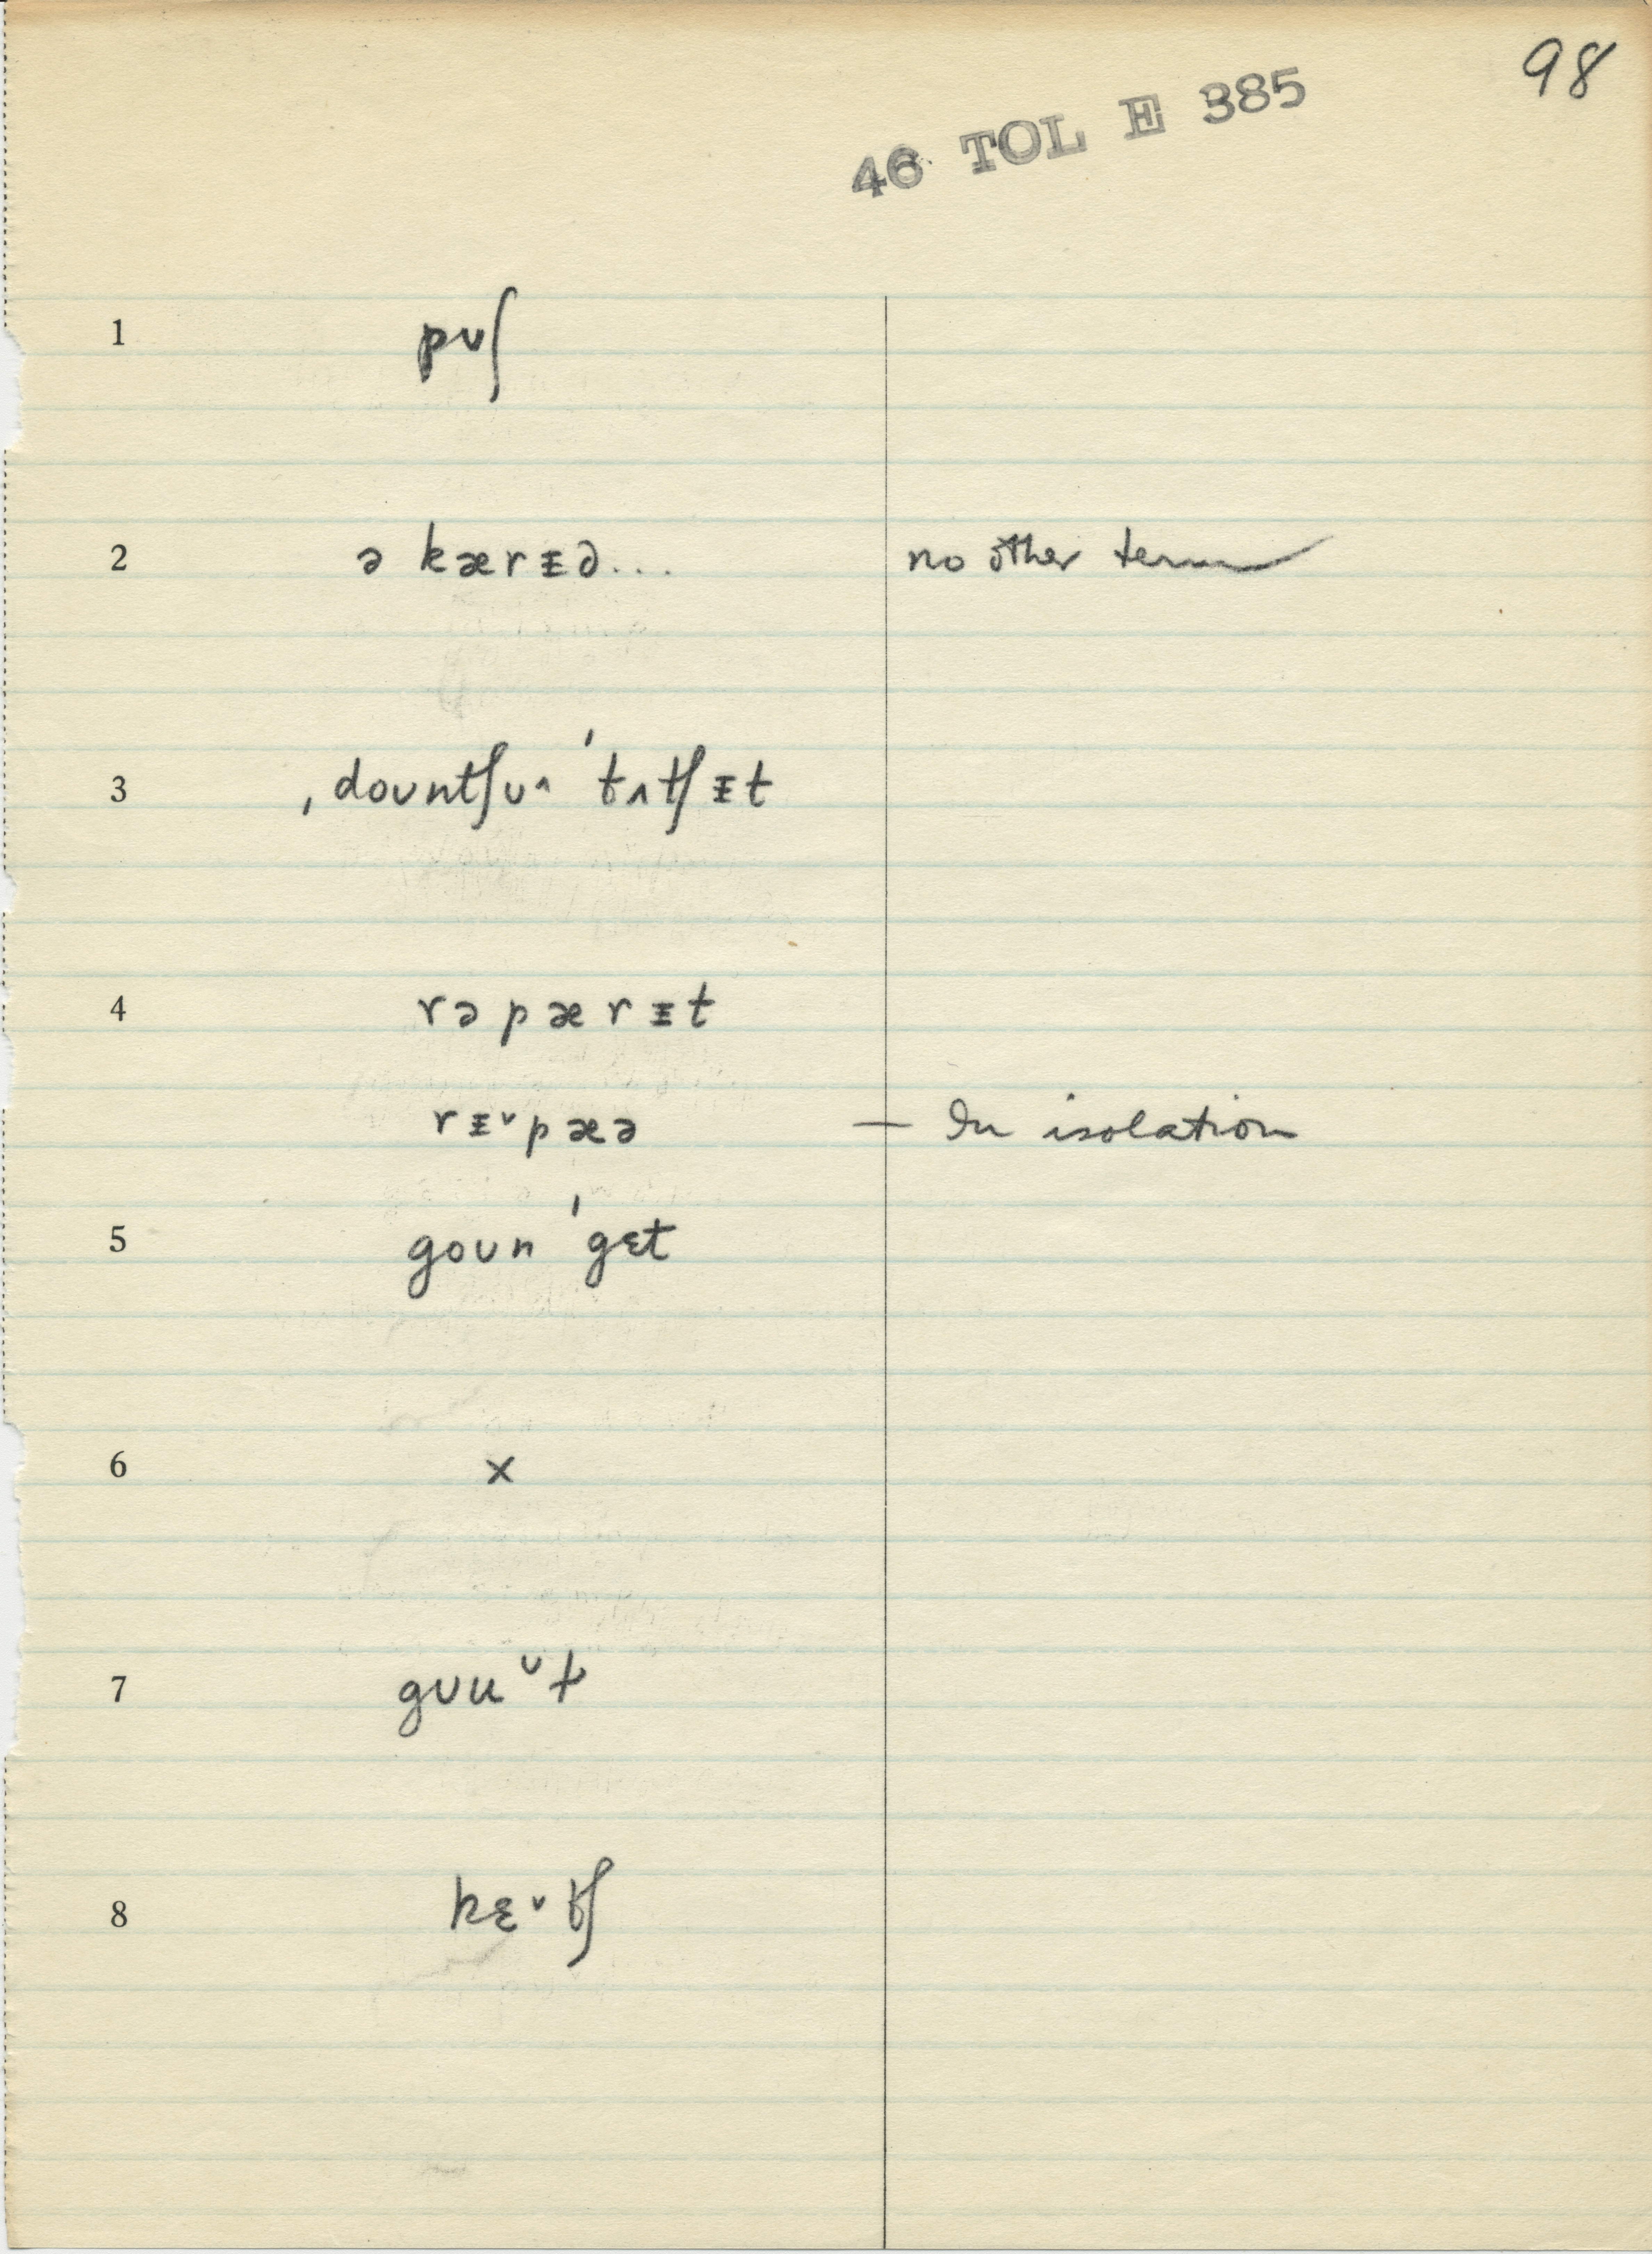 98
46 TOL E 385
1 pʊʃ
2 ə kærᵻd... no other term
3 ˌdoʊntʃʊ^ ˈtʌtʃᵻt
4 rəpærᵻt
rᵻ˅pæə — In isolation
5 goʊn ˈgɛt
6 x
7 gʊu˅t
8 kɛ˅tʃ